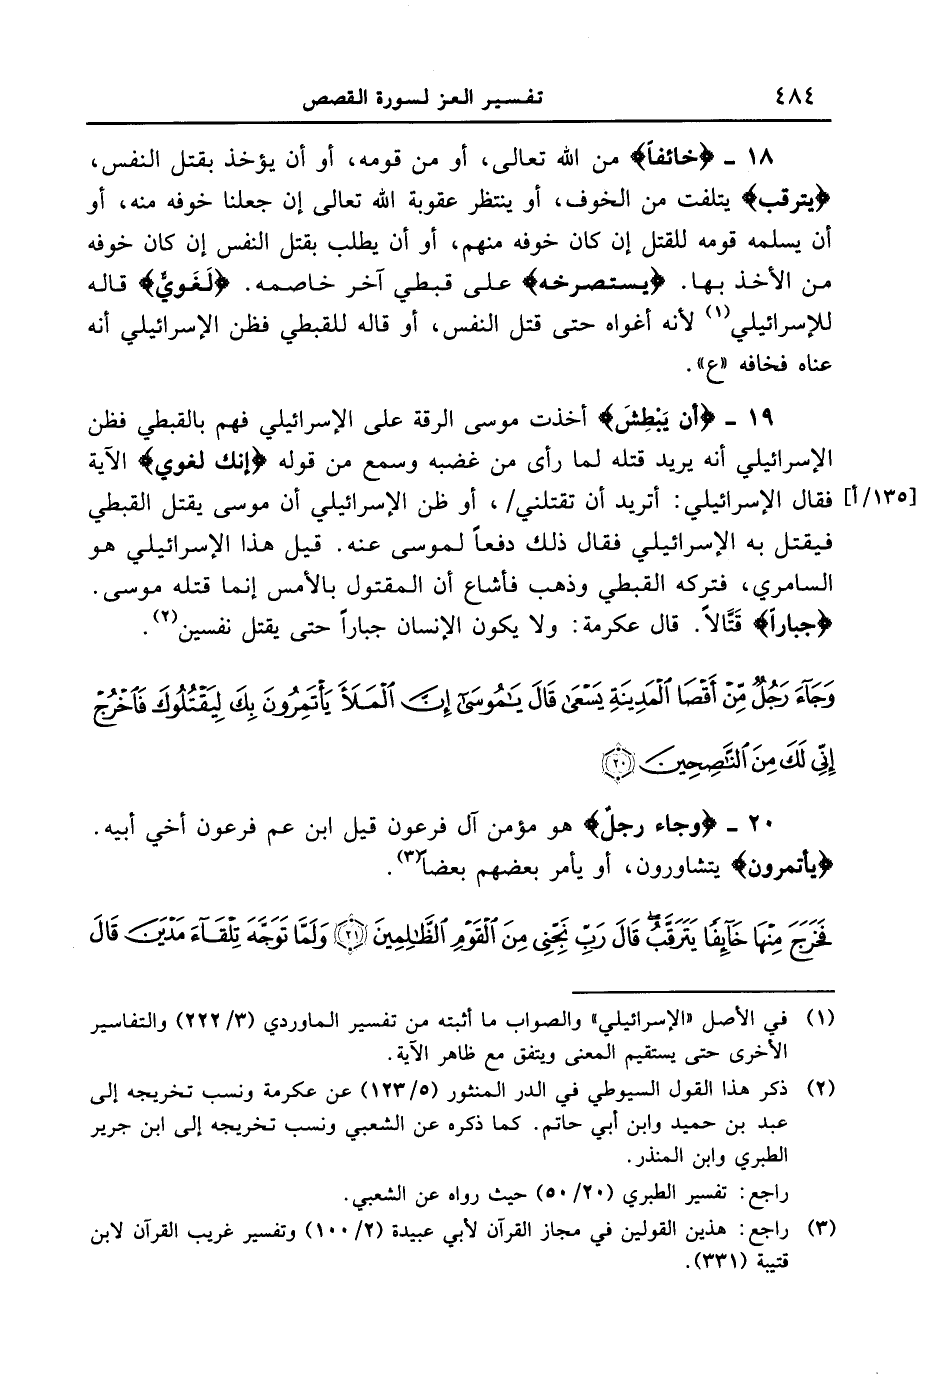 ٤٨٤ تفسير العز لسورة القصص
١٨ ـ ﴿خائفاً﴾ من الله تعالى، أو من قومه، أو أن يؤخذ بقتل النفس،
﴿يترقب﴾ يتلفت من الخوف، أو ينتظر عقوبة الله تعالى إن جعلنا خوفه منه، أو
أن يسلمه قومه للقتل إن كان خوفه منهم، أو أن يطلب بقتل النفس إن كان خوفه
من الأخذ بها. ﴿يستصرخه﴾ على قبطي آخر خاصمه. ﴿لَغَويٌّ﴾ قاله
للإسرائيلي(١) لأنه أغواه حتى قتل النفس، أو قاله للقبطي فظن الإسرائيلي أنه
عناه فخافه «ع».
١٩ ـ ﴿أن يَبْطِشَ﴾ أخذت موسى الرقة على الإسرائيلي فهم بالقبطي فظن
الإسرائيلي أنه يريد قتله لما رأى من غضبه وسمع من قوله ﴿إنك لغوي﴾ الآية
[١٣٥/أ] فقال الإسرائيلي: أتريد أن تقتلني/، أو ظن الإسرائيلي أن موسى يقتل القبطي
فيقتل به الإسرائيلي فقال ذلك دفعاً لموسى عنه. قيل هذا الإسرائيلي هو
السامري، فتركه القبطي وذهب فأشاع أن المقتول بالأمس إنما قتله موسى.
﴿جباراً﴾ قَتَّالاً. قال عكرمة: ولا يكون الإنسان جباراً حتى يقتل نفسين(٢).
وَجَآءَ رَجُلٌ مِّنْ أَقْصَا ٱلْمَدِينَةِ يَسْعَىٰ قَالَ يَـٰمُوسَىٰٓ إِنَّ ٱلْمَلَأَ يَأْتَمِرُونَ بِكَ لِيَقْتُلُوكَ فَٱخْرُجْ
إِنِّى لَكَ مِنَ ٱلنَّـٰصِحِينَ ﴿٢٠﴾
٢٠ ـ ﴿وجاء رجلٌ﴾ هو مؤمن آل فرعون قيل ابن عم فرعون أخي أبيه.
﴿يأتمرون﴾ يتشاورون، أو يأمر بعضهم بعضاً(٣).
فَخَرَجَ مِنْهَا خَآئِفًا يَتَرَقَّبُ ۖ قَالَ رَبِّ نَجِّنِى مِنَ ٱلْقَوْمِ ٱلظَّـٰلِمِينَ ﴿٢١﴾ وَلَمَّا تَوَجَّهَ تِلْقَآءَ مَدْيَنَ قَالَ
(١) في الأصل «الإسرائيلي» والصواب ما أثبته من تفسير الماوردي (٣/٢٢٢) والتفاسير
الأخرى حتى يستقيم المعنى ويتفق مع ظاهر الآية.
(٢) ذكر هذا القول السيوطي في الدر المنثور (٥/١٢٣) عن عكرمة ونسب تخريجه إلى
عبد بن حميد وابن أبي حاتم. كما ذكره عن الشعبي ونسب تخريجه إلى ابن جرير
الطبري وابن المنذر.
راجع: تفسير الطبري (٢٠/٥٠) حيث رواه عن الشعبي.
(٣) راجع: هذين القولين في مجاز القرآن لأبي عبيدة (٢/١٠٠) وتفسير غريب القرآن لابن
قتيبة (٣٣١).